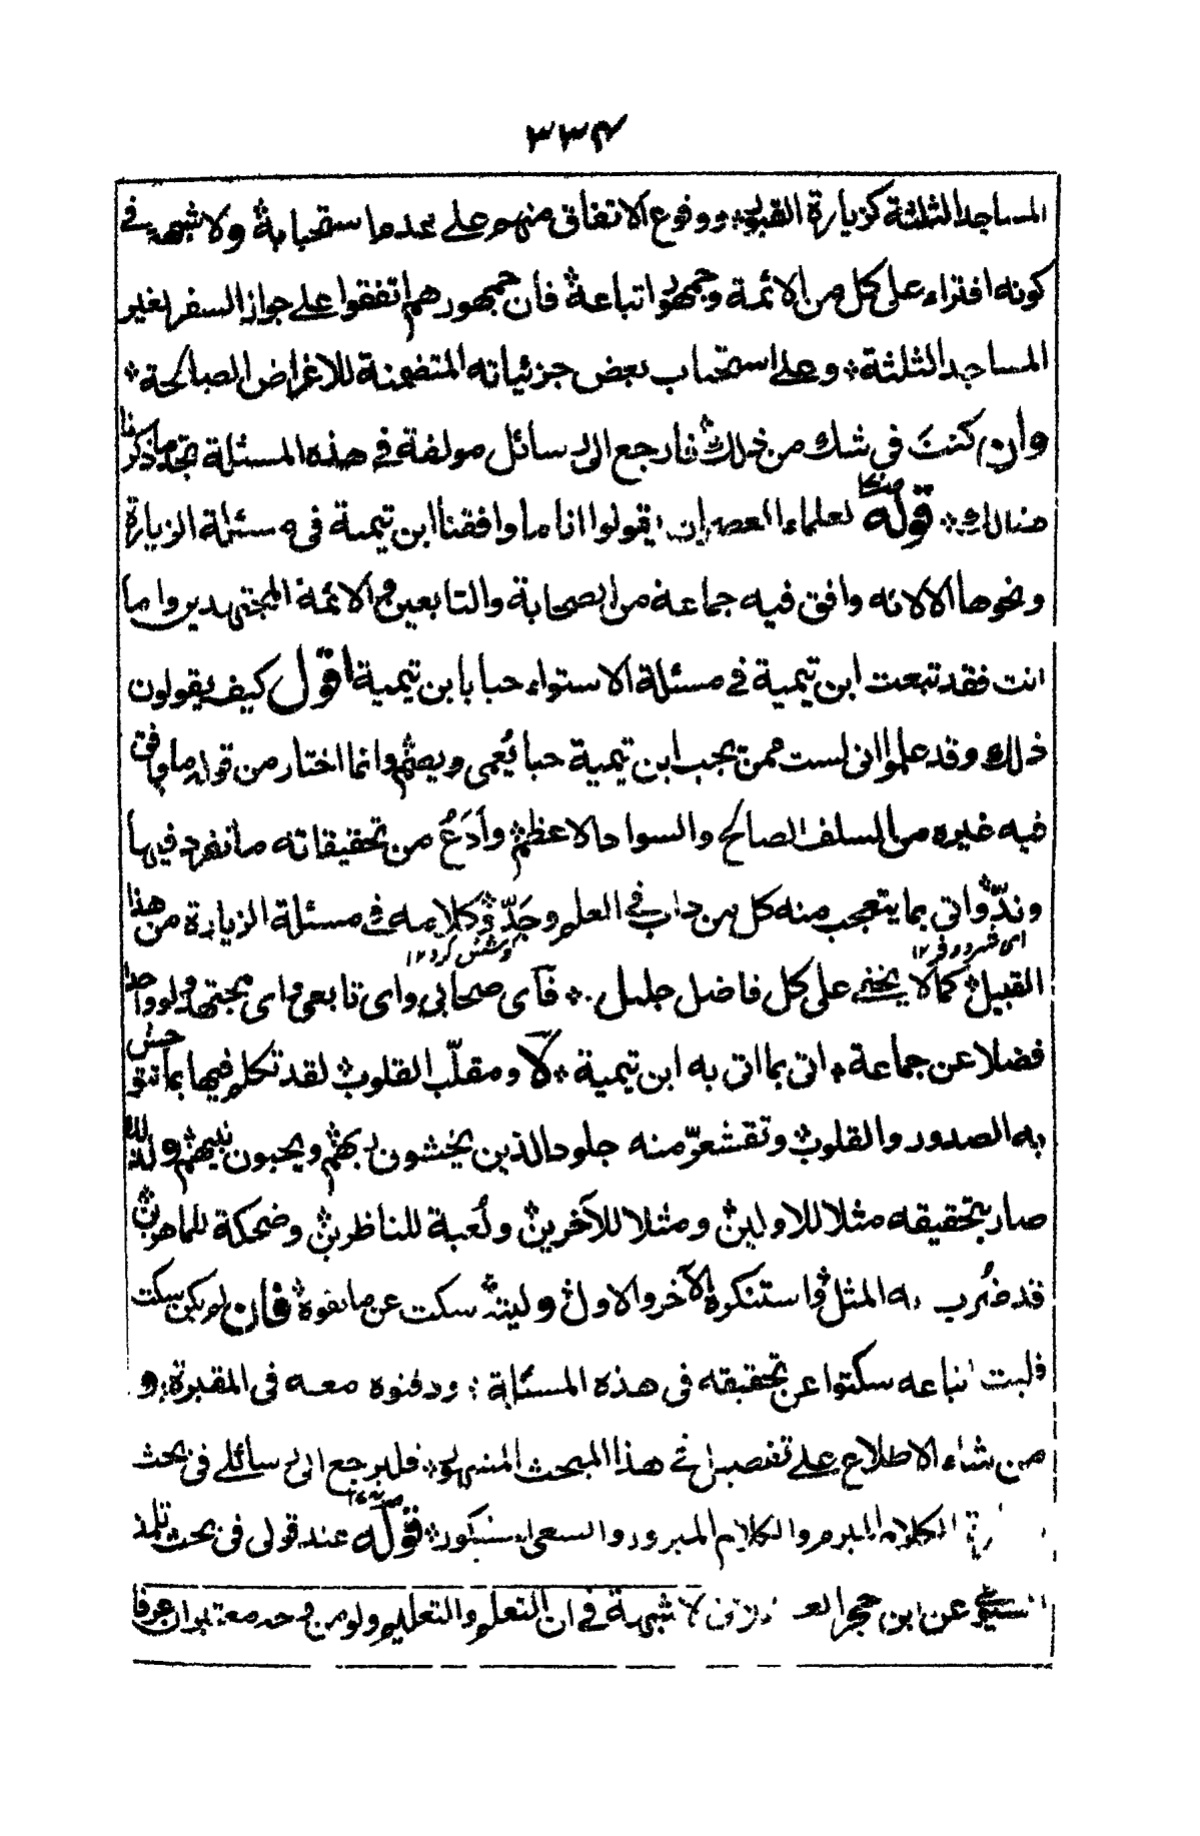 ٣٣٤
المساجد الثلثة كزيارة القبور ووقوع الاتفاق منهم على عدم استحبابة ولا شبهة في
كونه افتراء على كل من الائمة وجمهور اتباعة فان جمهورهم اتفقوا على جواز السفر لغير
المساجد الثلثة وعلى استحباب بعض جزئياته المتضمنة للاغراض الصالحة
وان كنت في شك من ذلك فارجع الى رسائل مولفة في هذه المسئلة تجد ما ذكرنا
هنالك قوله لعلماء العصر ان يقولوا انا ما وافقنا ابن تيمية في مسئلة الزيارة
ونحوها الا لانه وافق فيه جماعة من الصحابة والتابعين والائمة المجتهدين واما
انت فقد تبعت ابن تيمية في مسئلة الاستواء حبا بابن تيمية اقول كيف يقولون
ذلك وقد علموا انى لست ممن يحب ابن تيمية حبا يُعمى ويصم وانما اختار من قوله ما وافق
فيه غيره من السلف الصالح والسواد الاعظم وأدَعُ من تحقيقاته ما تفرد فيها
وندّ واتى بما يتعجب منه كل من داب في العلم وجَدّ وكلامه في مسئلة الزيارة من هذا
اى شرد ونفر ١٢ كوشش كرد ١٢
القبيل كما لا يخفى على كل فاضل جليل فآى صحابى واى تابعى واى مجتهد ولو واحد
فضلا عن جماعة اتى بما اتى به ابن تيمية كلا ومقلّب القلوب لقد تكلم فيها بما تتوحش
به الصدور والقلوب وتقشعرّ منه جلود الذين يخشون ربهم ويحبون نبيهم ولذلك
صار بتحقيقه مثلا للاولين ومثلا للآخرين ولُعبة للناظرين وضحكة للماهرين
قد ضُرب به المثل واستنكره الآخر والاول وليته سكت عن ما تفوه فان لم يكن سكت
فليت اتباعه سكتوا عن تحقيقه في هذه المسئلة ودفنوه معه في المقبرة و
من شاء الاطلاع على تفصيل ما في هذا المبحث المنهول فليرجع الى رسائلى في بحث
الكلام المبرم والكلام المبرور والسعى المشكور قوله عند قولى في بحث تلمذ
السيوطى عن ابن حجر العسقلانى لا شبهة في ان التعلم والتعليم ولو من وجه معتبران عرفا